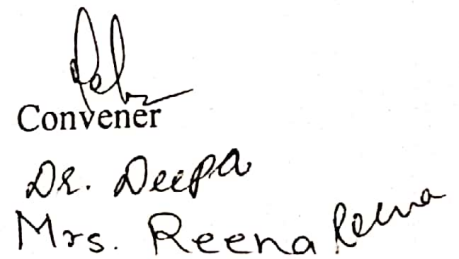 Convener
Dr. Deepa
Mrs. Reena Reena